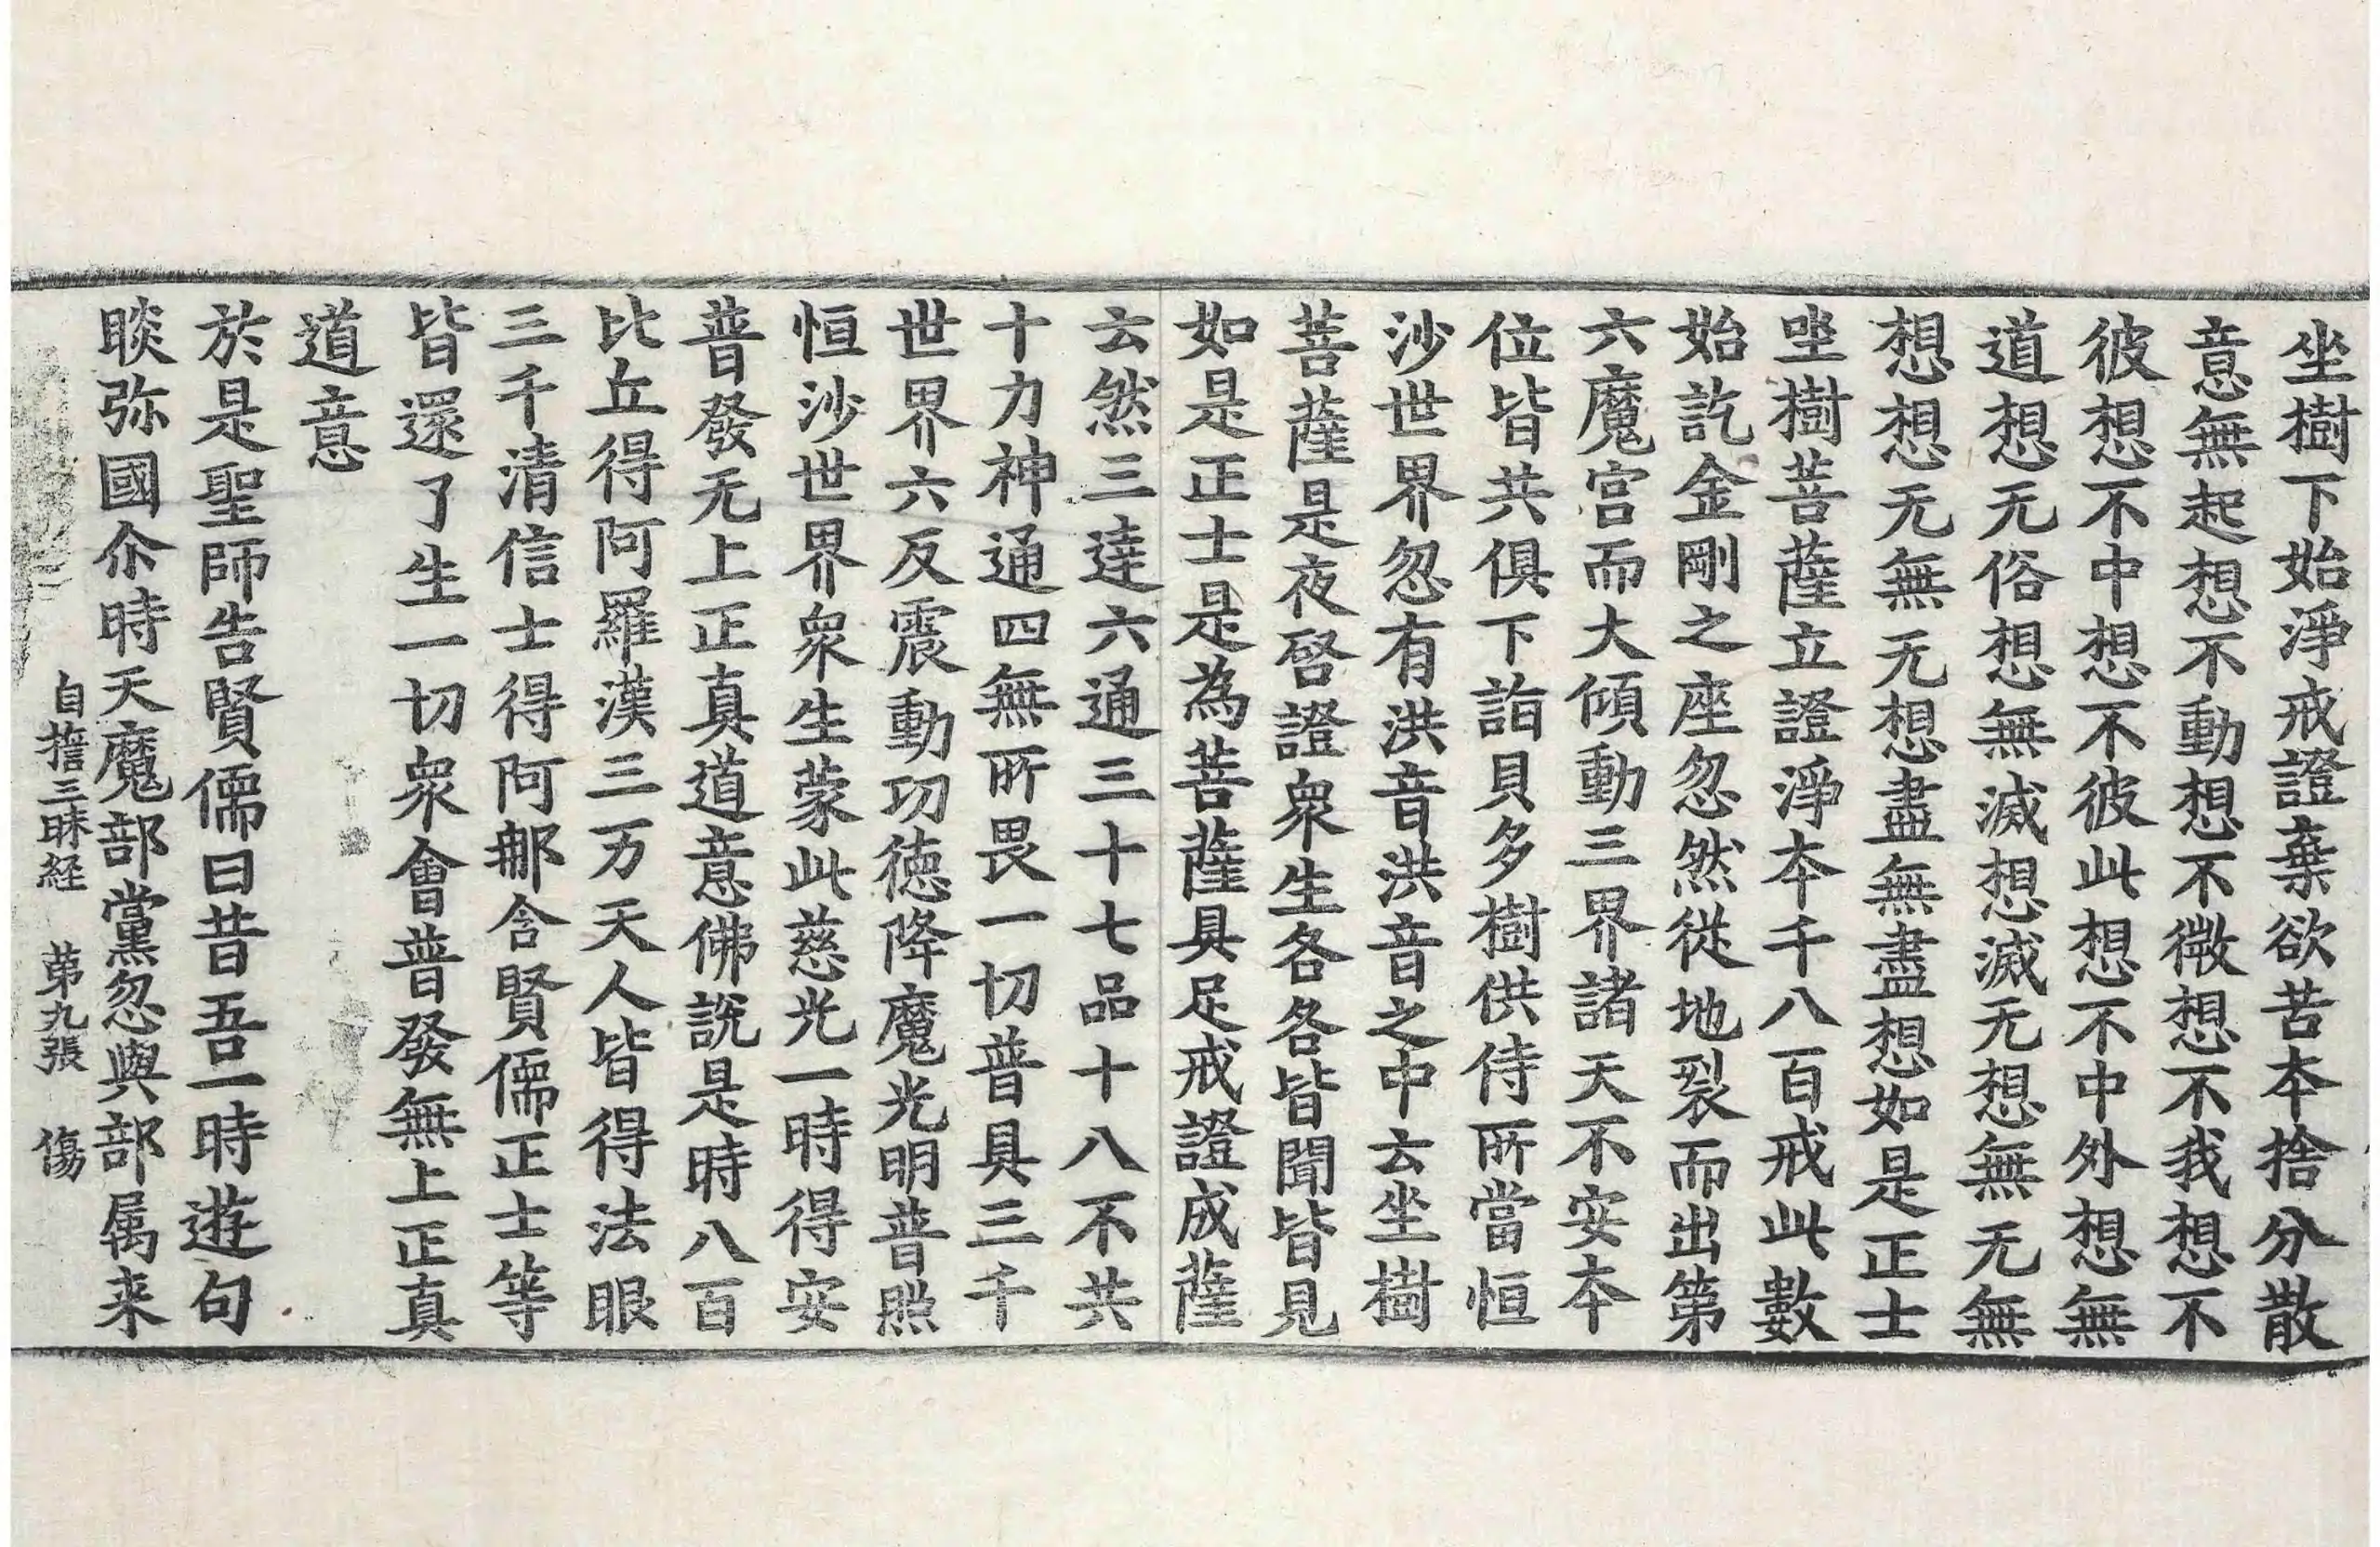 坐樹下始淨戒證棄欲苦夲捨分散
意無起想不動想不微想不我想不
彼想不中想不彼此想不中外想無
道想无俗想無滅想滅无想無无無
想想无無无想盡無盡想如是正士
坐樹菩薩立證淨夲千八百戒此數
始訖金剛之座忽然從地裂而出第
六魔宫而大傾動三界諸天不安夲
位皆共俱下詣貝多樹供侍所當恒
沙世界忽有洪音洪音之中云坐樹
菩薩是夜啓證衆生各各皆聞皆見
如是正士是為菩薩具足戒證成薩
云然三達六通三十七品十八不共
十力神通四無所畏一切普具三千
世界六反震動功德降魔光明普照
恒沙世界衆生蒙此慈光一時得安
普發无上正真道意佛說是時八百
比丘得阿羅漢三万天人皆得法眼
三千清信士得阿那含賢儒正士等
皆還了生一切衆會普發無上正真
道意
於是聖師告賢儒曰昔吾一時遊句
睒弥國尒時天魔部黨忽與部属来
自擔三昧経 苐九張 傷